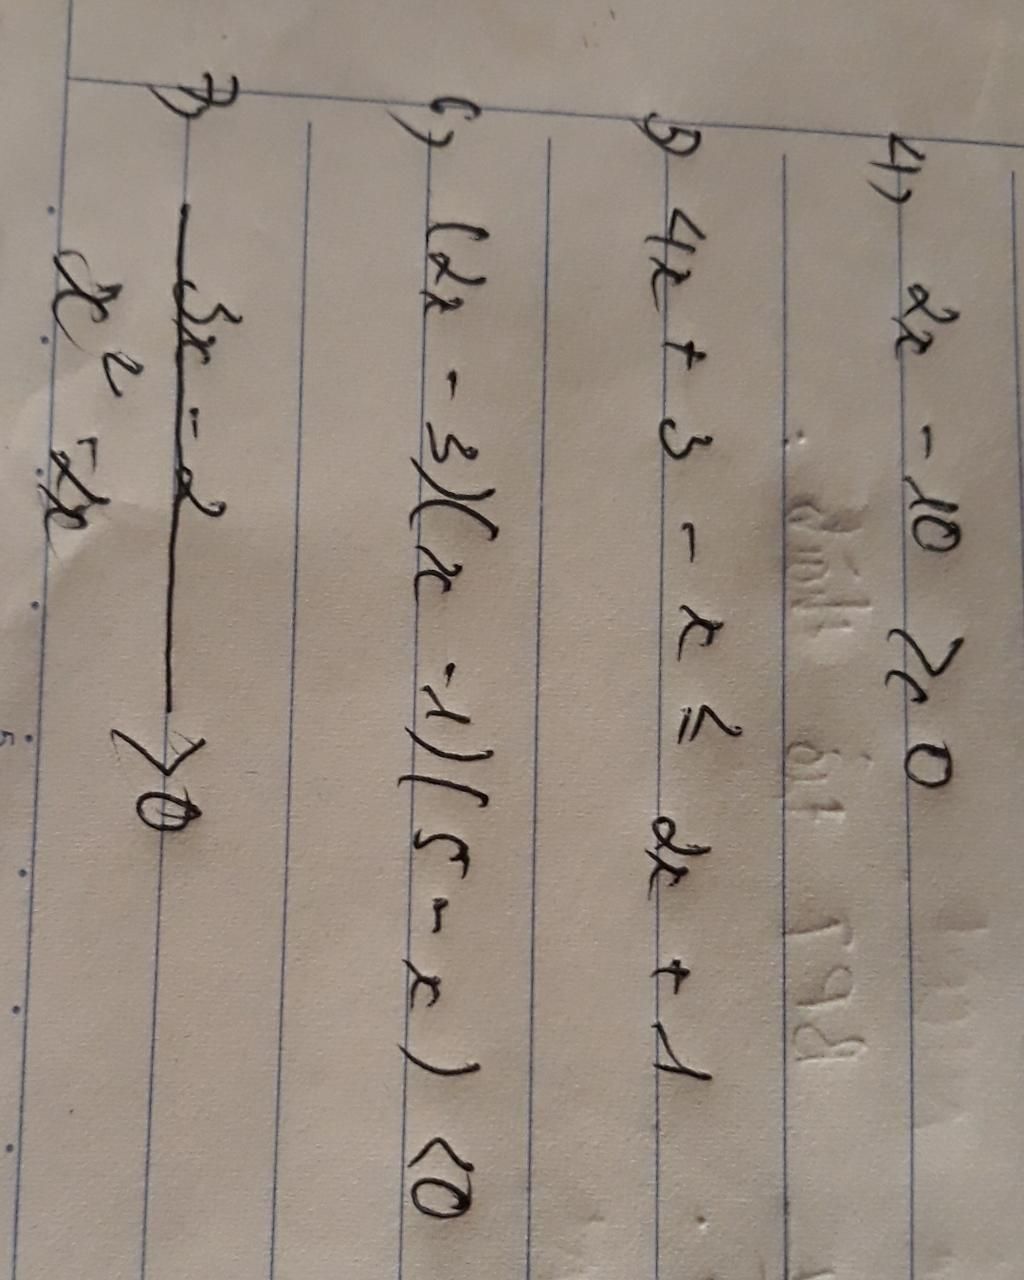 4) 2x - 10 ≥ 0
5) 4x + 3 - x ≤ 2x + 1
6) (2x - 3)(x - 1)(5 - x) < 0
7) 3x - 2 / x² - 2x > 0